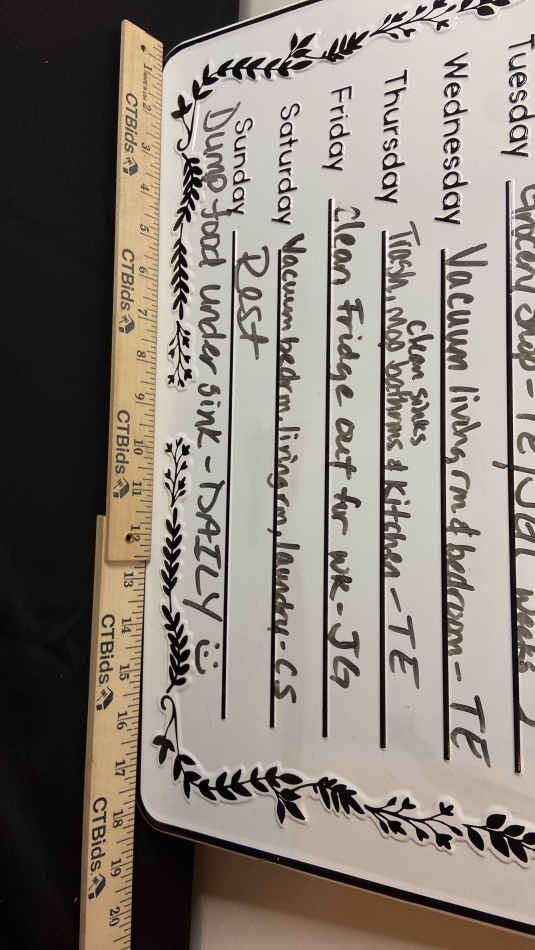 Tuesday
Grocery Shop - TE/JG weeks
Wednesday
Vacuum living rm & bedroom - TE
Thursday
Clean sinks
Trash, Mop bathrms & Kitchen - TE
Friday
Clean Fridge out for wk - JG
Saturday
Vacuum bedrm, living rm, laundry - CS
Sunday
Rest
Dump food under sink - DAILY
CTBids
CTBids
CTBids
CTBids
CTBids
1 2 3 4 5 6 7 8 9 10 11 12 13 14 15 16 17 18 19 20